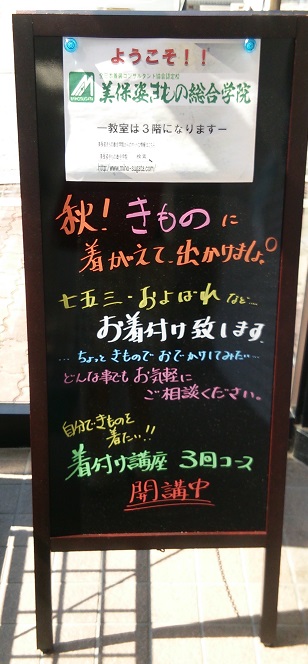 ようこそ！！
美保姿きもの総合学院
ー教室は３階になりますー
検索
http://www.miho-sugata.com/
秋！きものに
着がえて、出かけましょ。
七五三・およばれなど…
お着付け致します
…ちょっときものでおでかけしてみたい…
どんな事でもお気軽に
ご相談ください。
自分できものを
着たい!!
着付け講座 3回コース
開講中